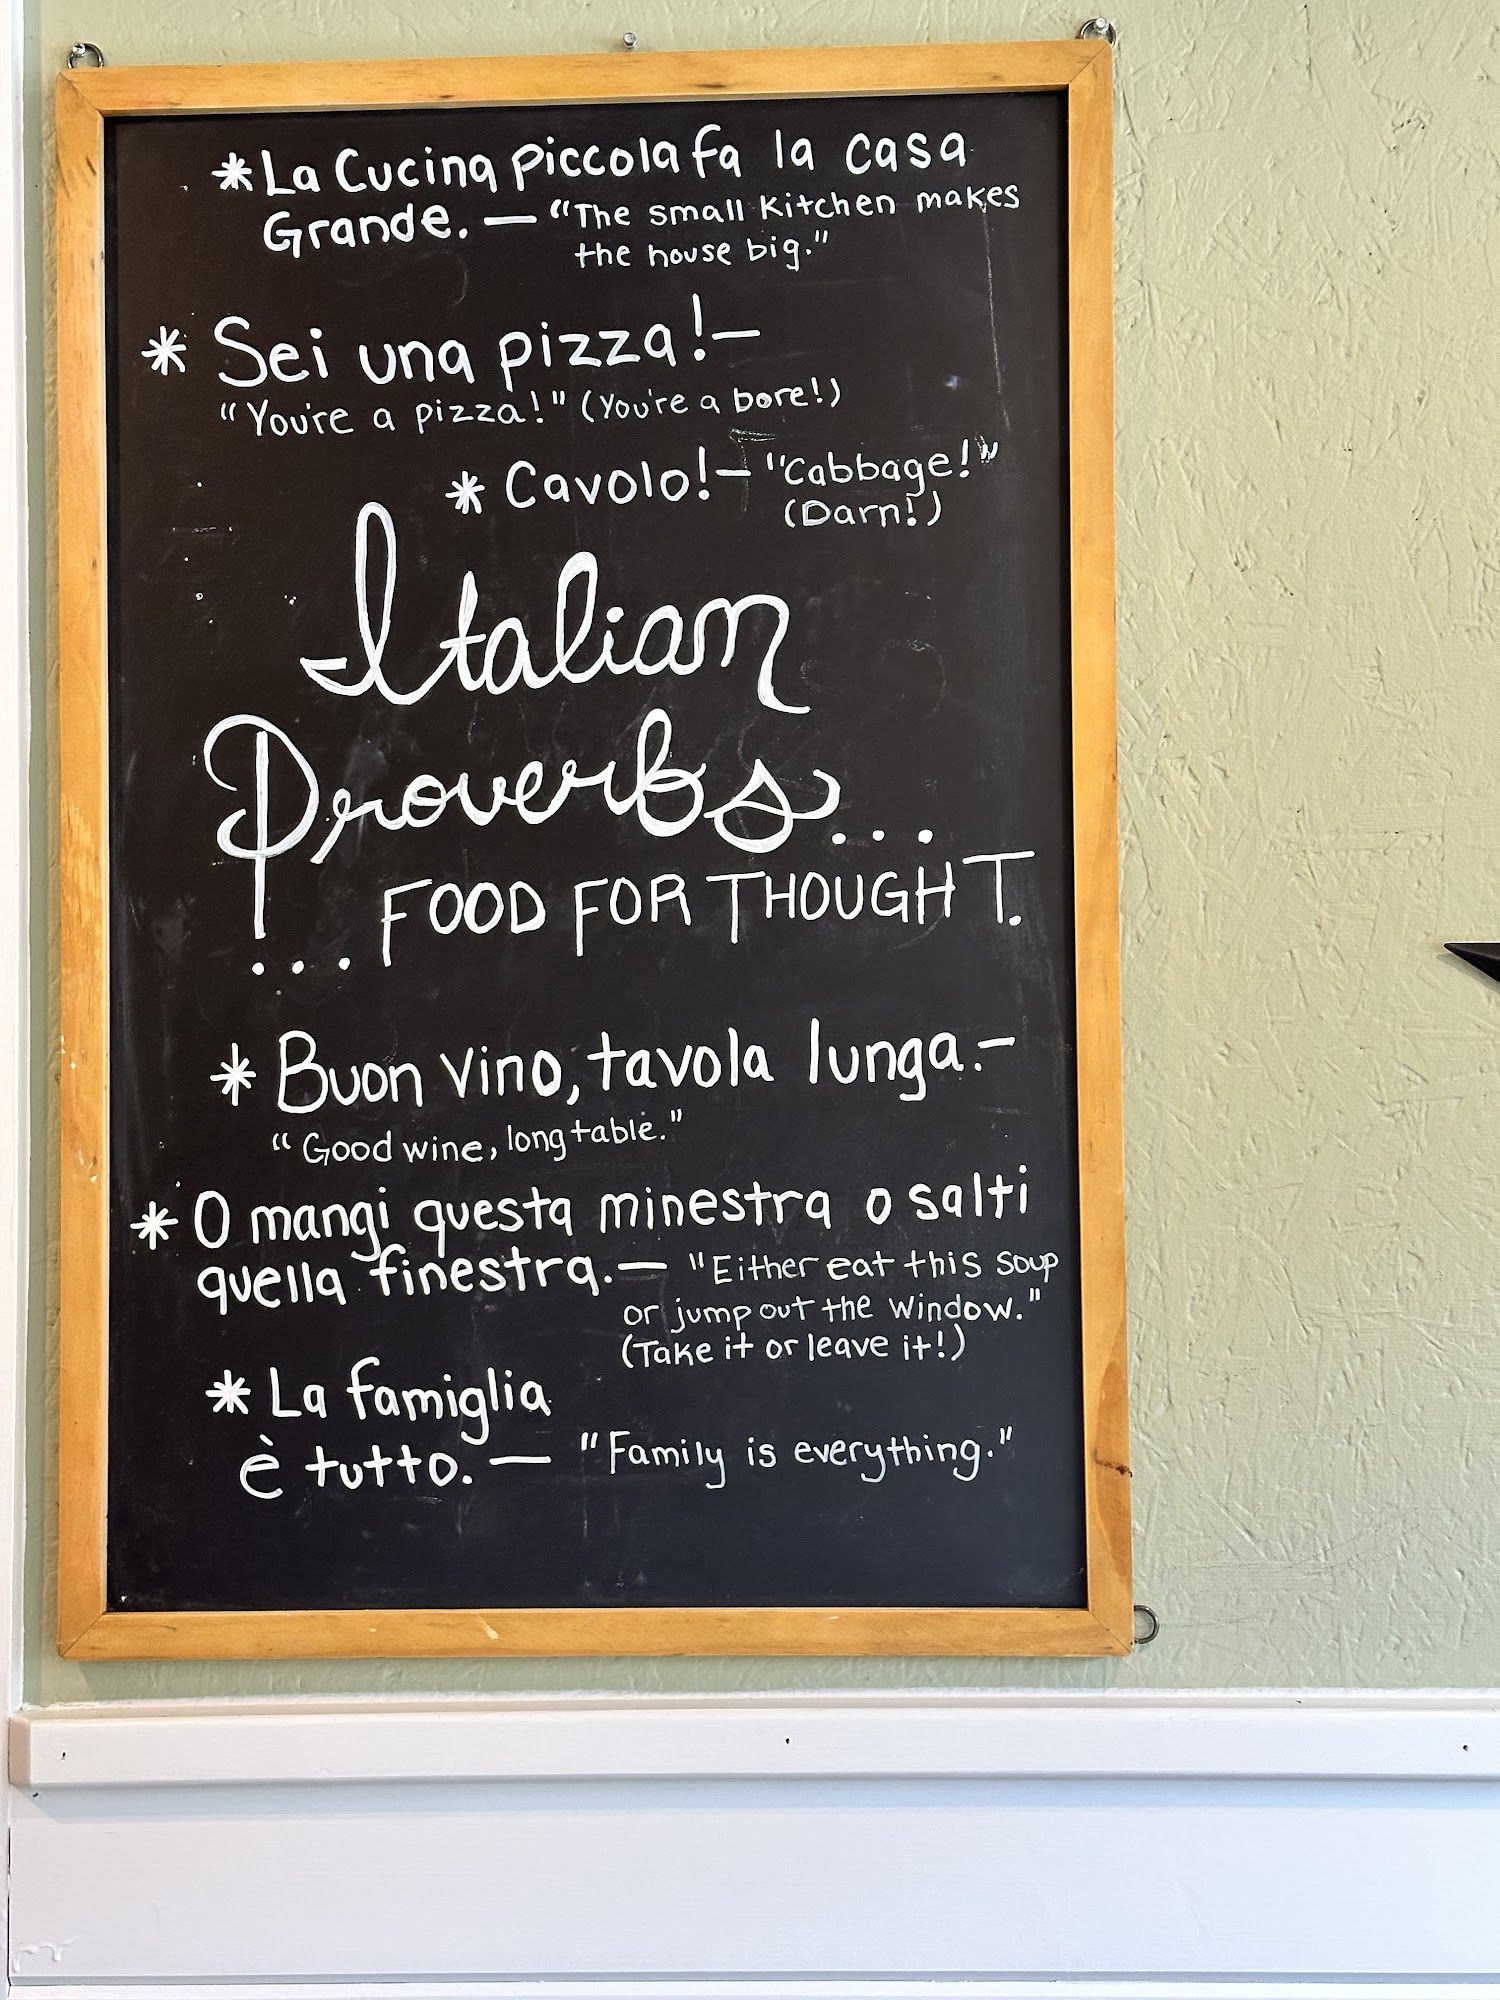 *La Cucina piccola fa la casa
Grande. — "The small Kitchen makes
the house big."
* Sei una pizza! —
"You're a pizza!" (You're a bore!)
* Cavolo! — "Cabbage!"
(Darn!)
Italian
Proverbs...
...FOOD FOR THOUGHT.
* Buon vino, tavola lunga. —
"Good wine, long table."
* O mangi questa minestra o salti
quella finestra. — "Either eat this soup
or jump out the window."
(Take it or leave it!)
* La famiglia
è tutto. — "Family is everything."